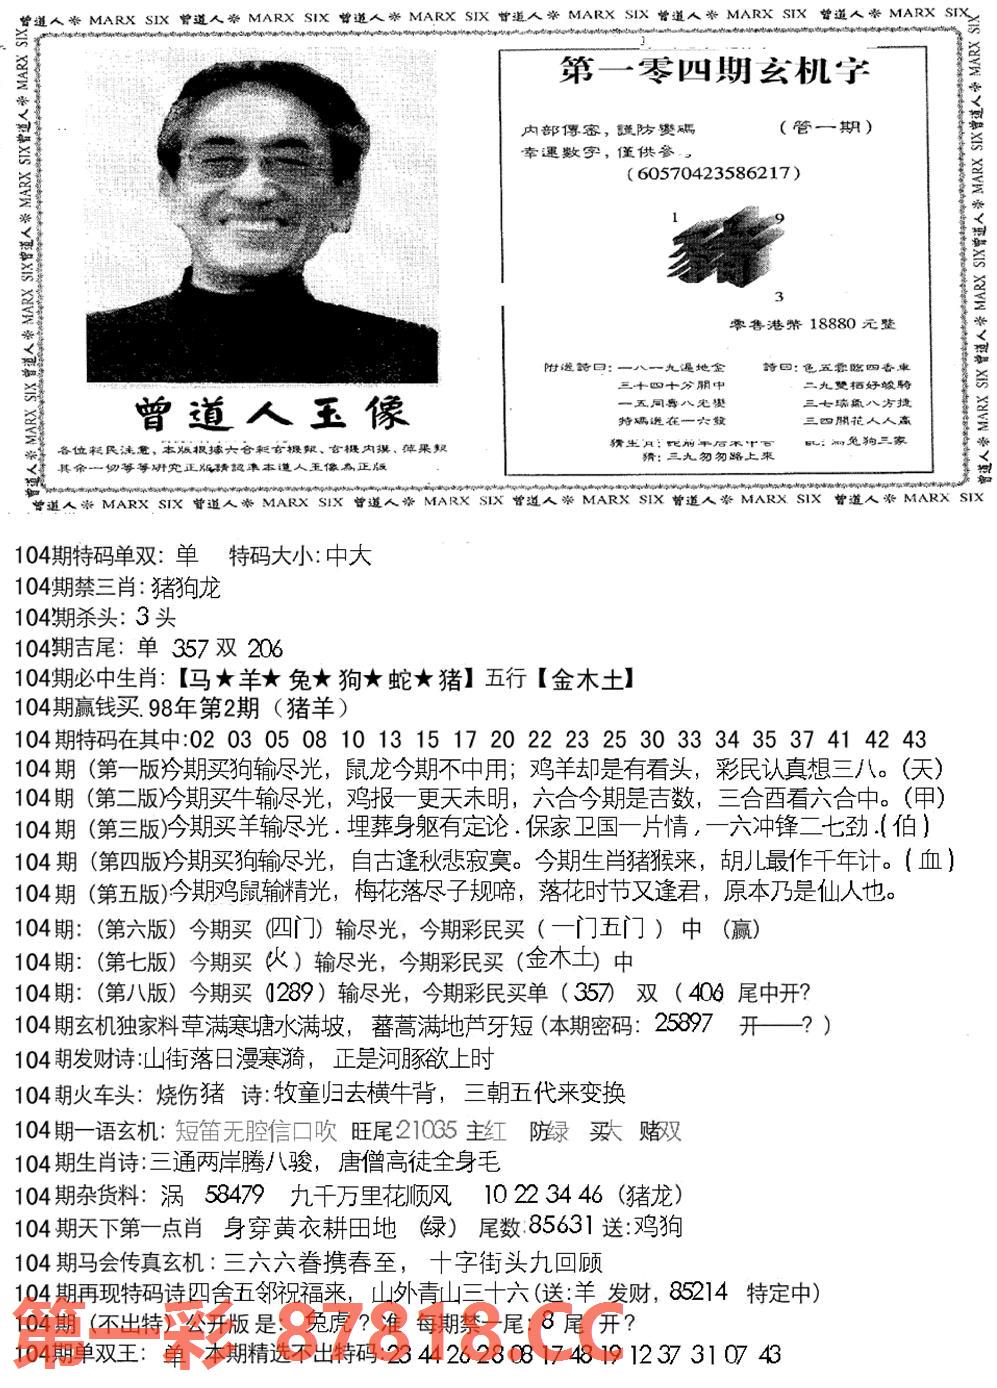 曾道人※ MARX SIX 曾道人※ MARX SIX 曾道人※ MARX SIX 曾道人※ MARX SIX 曾道人※ MARX SIX 曾道人※ MARX SIX
第一零四期玄机字
內部傳密，謹防變碼 （管一期）
幸運數字，僅供參
(60570423586217)
1 9
猪
3
零售港幣 18880 元整
附送詩曰：一八一九遍地金
三十四十分開中
一五同尋八光變
特碼送在一六發
詩曰：色五雲臨四香車
二九雙栖好峻騎
三七瑞氣八方捷
三四開花人人贏
猜：三九勿勿路上來
曾道人玉像
各位彩民注意，本版根據六合彩玄機報、玄機內摸、蘋果報
其余一切等等研究正版請認準本道人玉像為正版
曾道人※ MARX SIX 曾道人※ MARX SIX 曾道人※ MARX SIX 曾道人※ MARX SIX 曾道人※ MARX SIX 曾道人※ MARX SIX
104期特码单双：单 特码大小:中大
104期禁三肖:猪狗龙
104期杀头：3头
104期吉尾：单 357 双 206
104期必中生肖:【马★羊★兔★狗★蛇★猪】五行【金木土】
104期赢钱买.98年第2期（猪羊）
104期特码在其中:02 03 05 08 10 13 15 17 20 22 23 25 30 33 34 35 37 41 42 43
104期（第一版)今期买狗输尽光，鼠龙今期不中用；鸡羊却是有看头，彩民认真想三八。（天）
104期（第二版)今期买牛输尽光，鸡报一更天未明，六合今期是吉数，三合酉看六合中。（甲）
104期（第三版)今期买羊输尽光.埋葬身躯有定论.保家卫国一片情,一六冲锋二七劲.(伯)
104期（第四版)今期买狗输尽光，自古逢秋悲寂寞。今期生肖猪猴来，胡儿最作千年计。(血)
104期（第五版)今期鸡鼠输精光，梅花落尽子规啼，落花时节又逢君，原本乃是仙人也。
104期:（第六版）今期买（四门）输尽光，今期彩民买（一门五门）中（赢）
104期:（第七版）今期买（火）输尽光，今期彩民买（金木土）中
104期:（第八版）今期买（1289）输尽光，今期彩民买单（357） 双（406 尾中开？
104期玄机独家料草满寒塘水满坡，蕃蒿满地芦牙短(本期密码：25897 开——？)
104期发财诗:山街落日漫寒漪，正是河豚欲上时
104期火车头：烧伤猪 诗:牧童归去横牛背，三朝五代来变换
104期一语玄机：短笛无腔信口吹 旺尾:21035 主红 防绿 买大 赌双
104期生肖诗:三通两岸腾八骏，唐僧高徒全身毛
104期杂货料：涡 58479 九千万里花顺风 10 22 34 46（猪龙）
104期天下第一点肖 身穿黄衣耕田地 （绿） 尾数:85631 送:鸡狗
104期马会传真玄机：三六六眷携春至，十字街头九回顾
104期再现特码诗四舍五邻祝福来，山外青山三十六(送:羊 发财，85214 特定中)
104期（不出特）公开版 是：兔虎？准 每期禁一尾：8 尾 开？
104期单双王：单 本期精选不出特码:23 44 26 28 08 17 48 19 12 37 31 07 43
第一彩 87818.CC